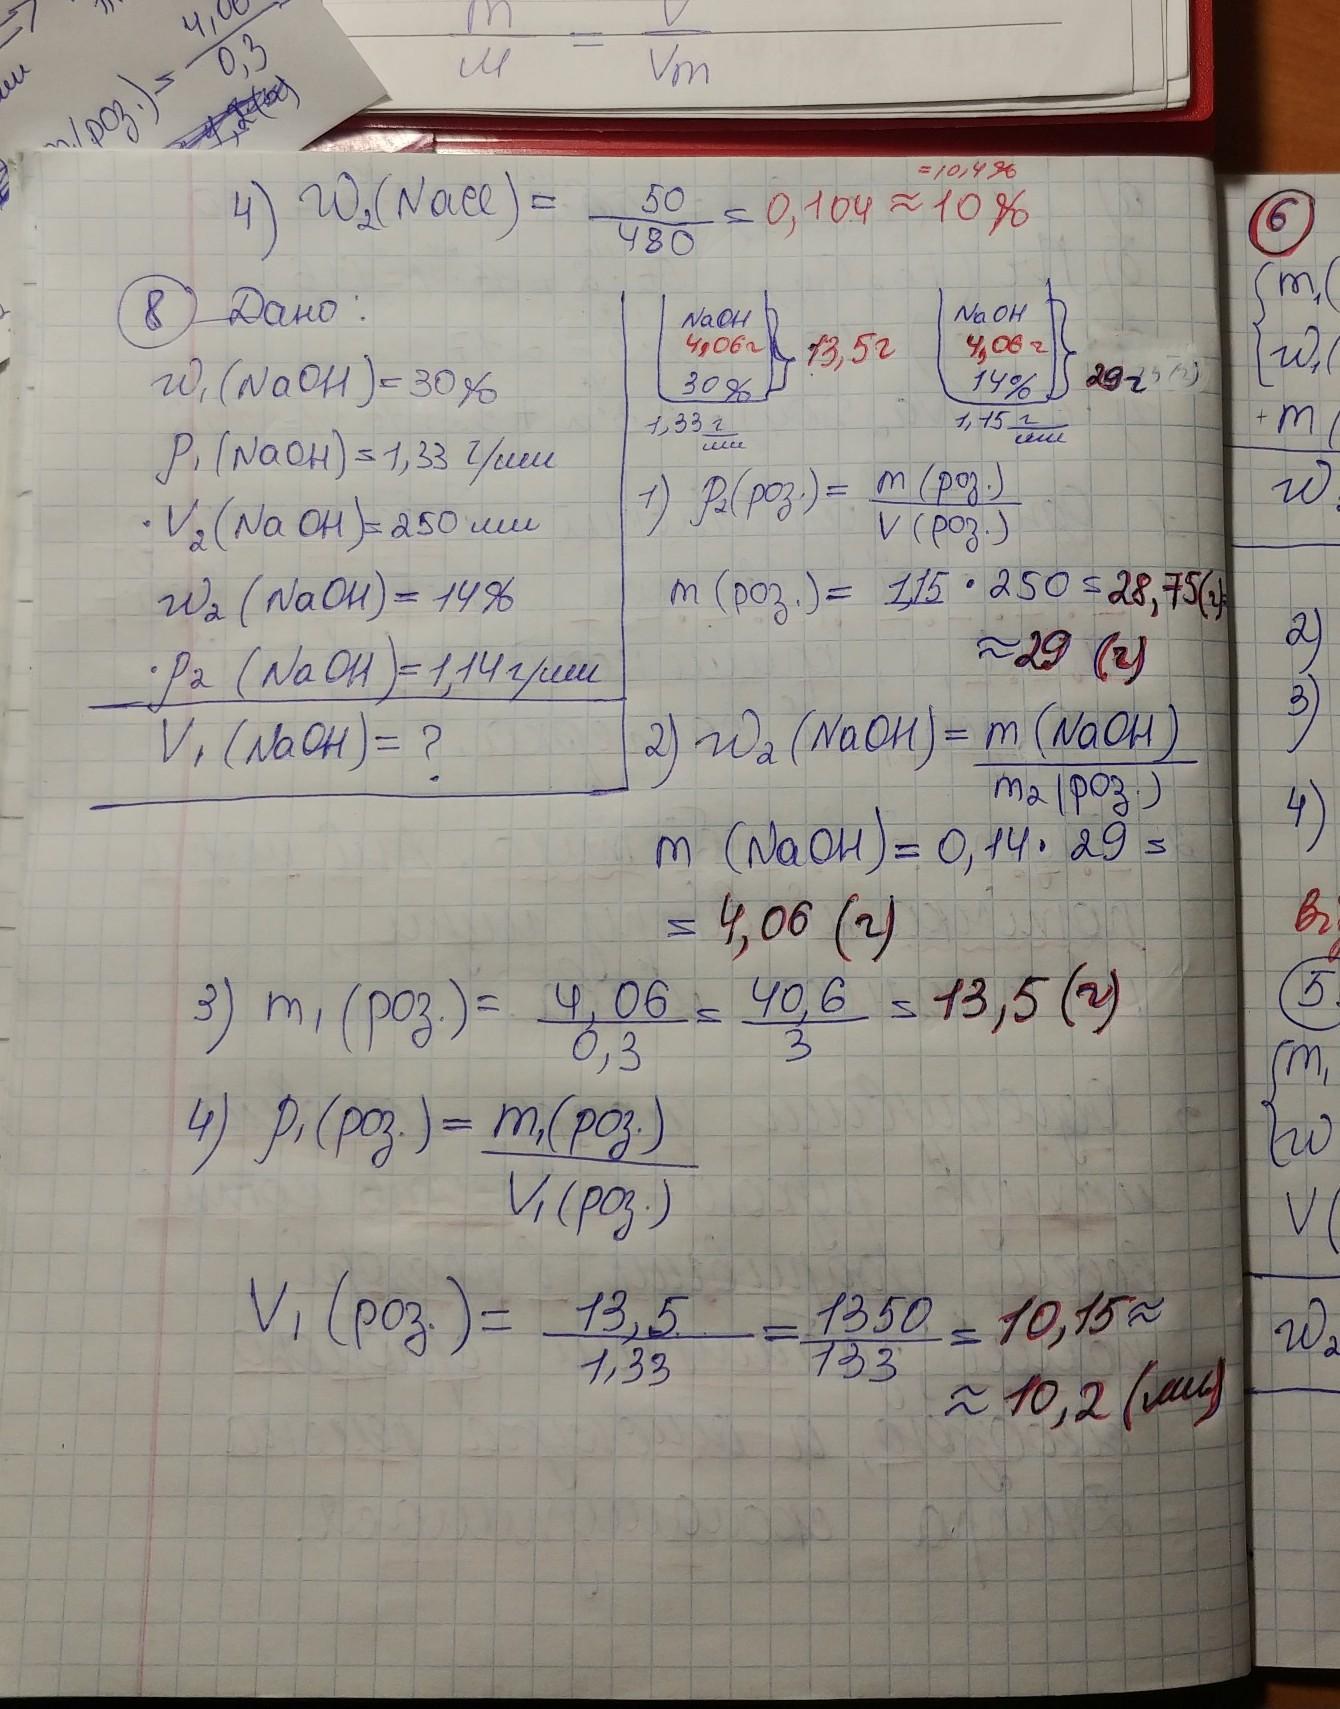 4,06
0,3
(роз.) =
m / M = V / Vm
4) W₂(NaCl) = 50/480 = 0,104 ≈ 10%
= 10,4%
8 Дано:
W₁(NaOH) = 30%
ρ₁(NaOH) = 1,33 г/мл
· V₂(NaOH) = 250 мл
W₂ (NaOH) = 14%
· ρ₂ (NaOH) = 1,14 г/мл
V₁ (NaOH) = ?
NaOH
4,06 г
30%
} 13,5 г
1,33 г/мл
NaOH
4,06 г
14%
} 29 г
1,15 г/мл
1) ρ₂(роз.) = m (роз.) / V (роз.)
m (роз.) = 1,15 · 250 = 28,75 (г) ≈
≈ 29 (г)
2) W₂ (NaOH) = m (NaOH) / m₂ (роз.)
m (NaOH) = 0,14 · 29 =
= 4,06 (г)
3) m₁ (роз.) = 4,06/0,3 = 40,6/3 = 13,5 (г)
4) ρ₁ (роз.) = m₁(роз.) / V₁ (роз.)
V₁ (роз.) = 13,5/1,33 = 1350/133 = 10,15 ≈
≈ 10,2 (мл)
6
m₁(
W₁(
+ m (
W
2)
3)
4)
5
m₁
W
V (
W₂